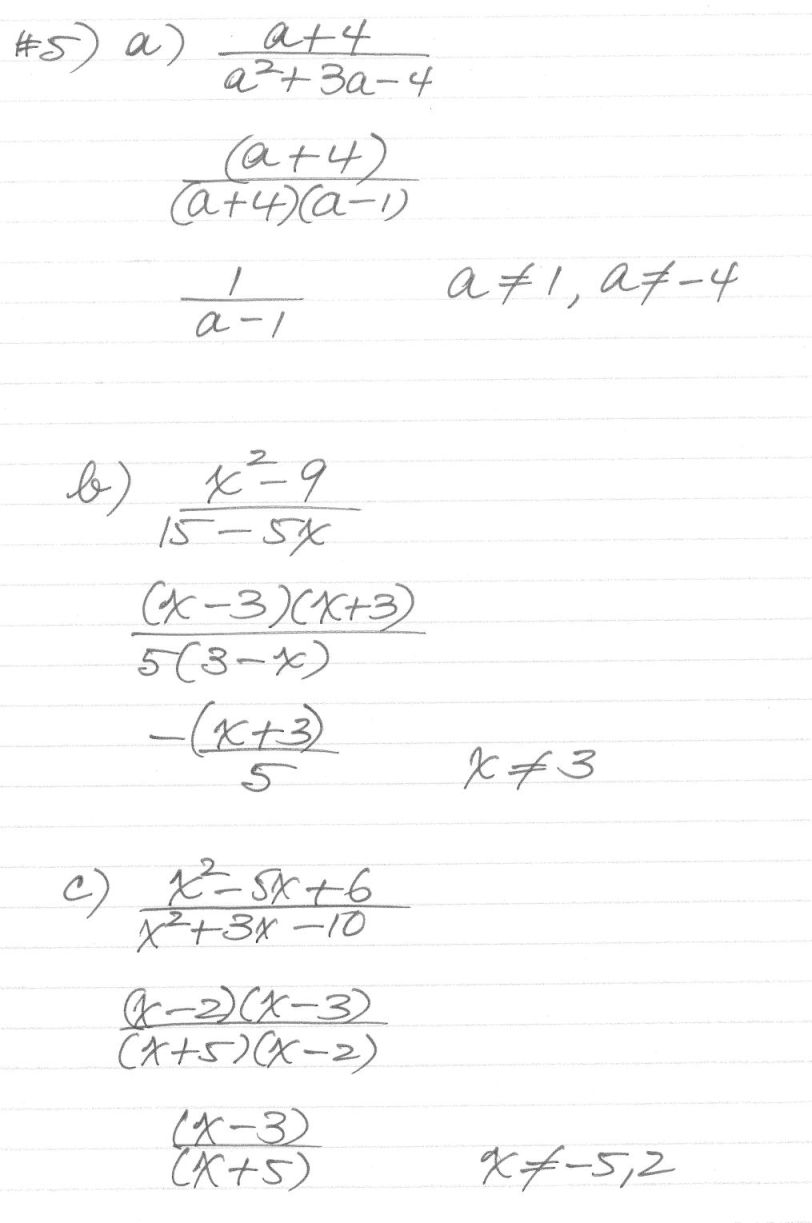 #5) a) a+4
a²+3a-4
(a+4)
(a+4)(a-1)
1
a-1 a≠1, a≠-4
b) x²-9
15-5x
(x-3)(x+3)
5(3-x)
-(x+3)
5 x≠3
c) x²-5x+6
x²+3x-10
(x-2)(x-3)
(x+5)(x-2)
(x-3)
(x+5) x≠-5,2